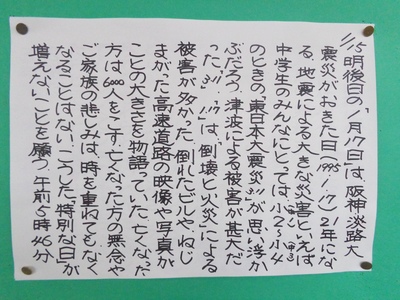 1/15 明後日の「1月17日」は、阪神淡路大
震災がおきた日(1995.1/17)21年にな
る。地震による大きな災害といえば
中学生のみんなにとっては、小2〜小4
のときの「東日本大震災3.11」が思い浮か
ぶだろう。津波による被害が甚大だ
った「3.11」、「1.17」は、倒壊と火災による
被害が多かった。倒れたビルや、ねじ
まがった高速道路の映像や写真が
ことの大きさを物語っていた。亡くなった
方は6000人をこす。亡くなった方の無念や
ご家族の悲しみは、時を重ねてもなく
なることはない。こうした「特別な日」が
増えないことを願う。午前5時46分